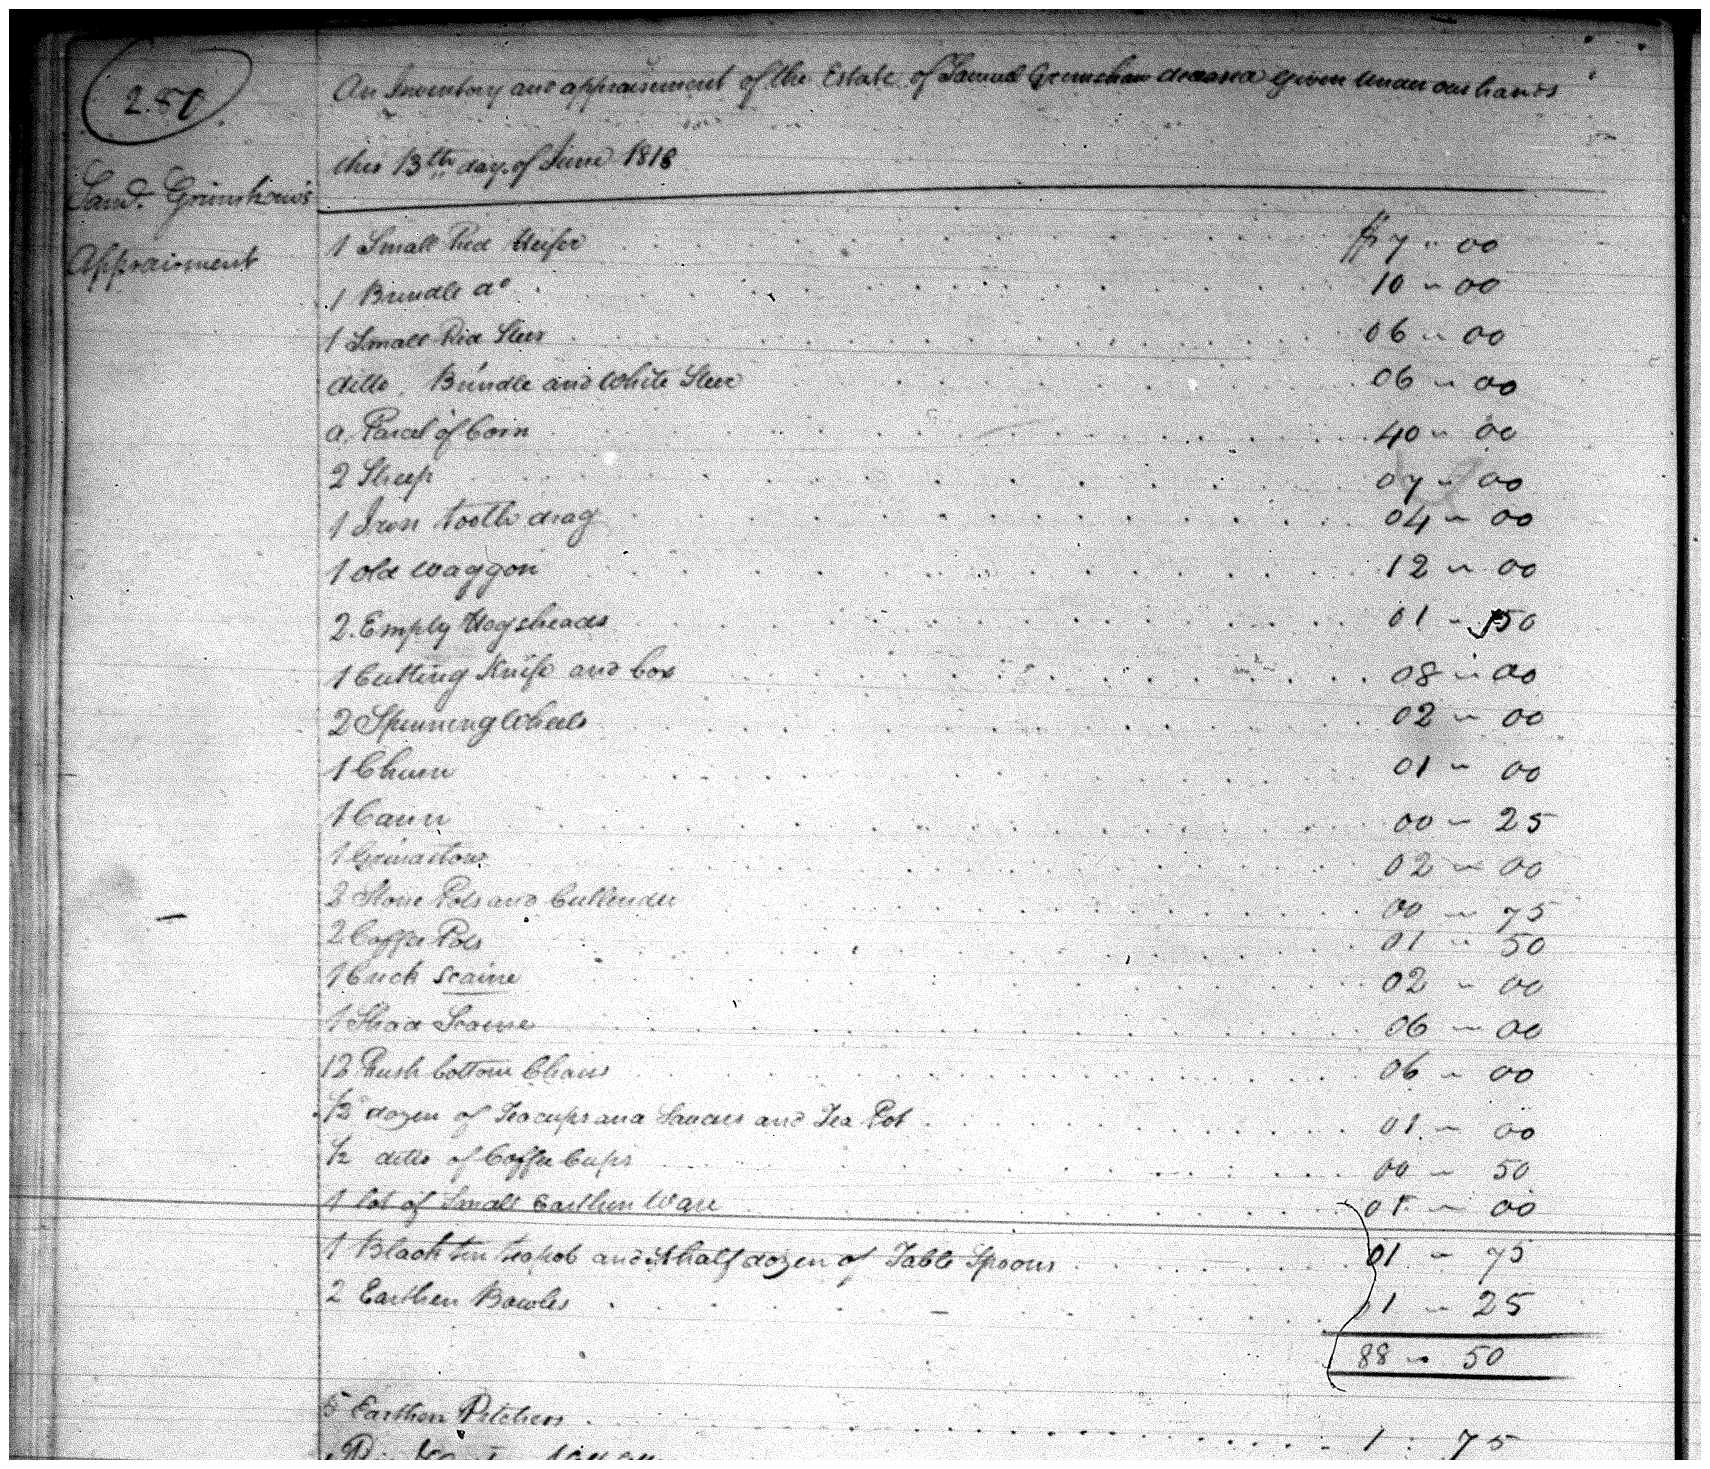 2.51
An Inventory and appraisement of the Estate of Samuel Grimshaw deceased given under our hands
this 13th day of June 1818
Saml. Grimshaw's
Appraisment
1 Small Red Heifer $7 " 00
1 Brindle do 10 " 00
1 Small Red Steer 06 " 00
ditto. Brindle and White Steer 06 " 00
a Parcel of Corn 40 " 00
2 Sheep 07 " 00
1 Iron tooth drag 04 " 00
1 old waggon 12 " 00
2 Empty Hogsheads 01 " 50
1 Cutting Knife and box 08 " 00
2 Spinning Wheels 02 " 00
1 Churn 01 " 00
1 Cann 00 " 25
1 Grindstone 02 " 00
2 Stone Pots and Cullender 00 " 75
2 Coffee Pots 01 " 50
1 scaine 02 " 00
1 Shad Scaine 06 " 00
12 Rush bottom Chairs 06 " 00
1/2 dozen of Teacups and Saucers and Tea Pot 01 " 00
1/2 ditto of Coffee Cups 00 " 50
1 lot of Small Earthen Ware 01 " 00
1 Black tin teapot and half dozen of Table Spoons 01 " 75
2 Earthen Bowles 1 " 25
88 " 50
5 Earthen Pitchers 1 : 75